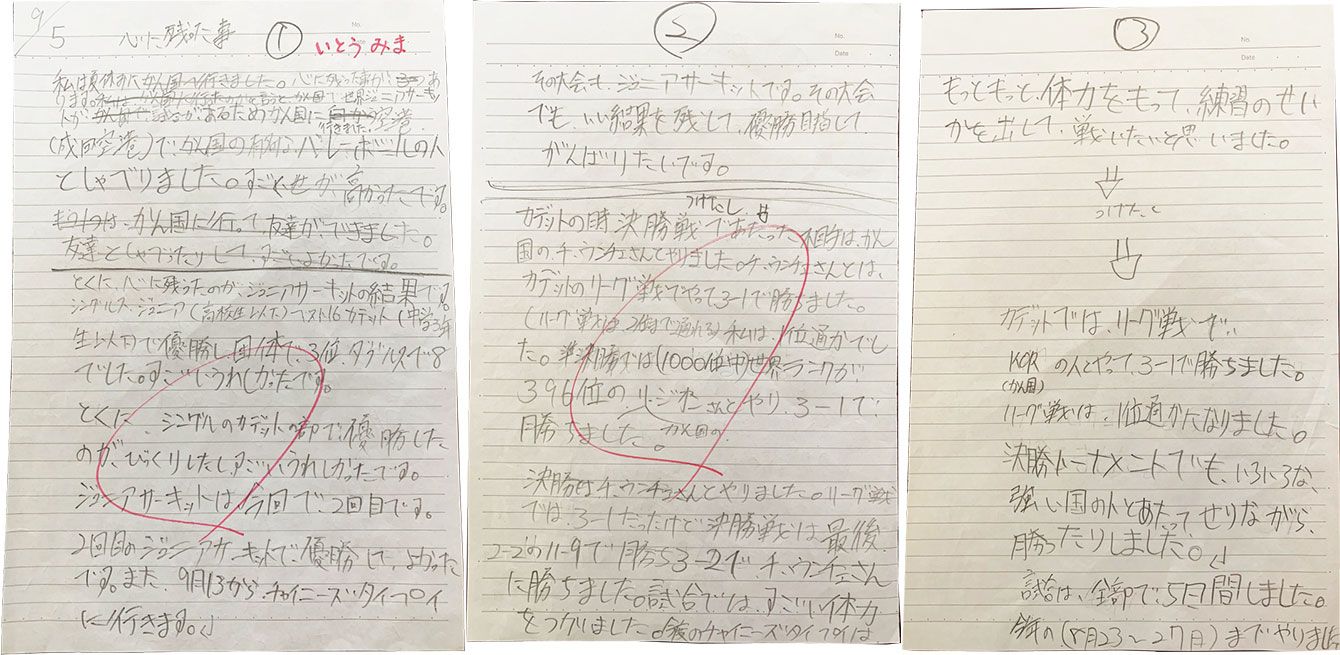 9/5 心に残った事 ① いとうみま
私は夏休みにかん国へ行きました。心に残った事が、あ
ります。かん国で世界ジュニアサーキッ
トがあるためかん国に行きました。空港
(成田空港)で、かん国の有名な、バレーボールの人
としゃべりました。すごくせが高かったです。
もう1つは、かん国に行って、友達ができました。
友達としゃべったりして、すごいよかったです。
とくに、心に残ったのが、ジュニアサーキットの結果です。
シングルス、ジュニア(高校生以下)ベスト16 カデット(中学3年
生以下)で優勝し、団体で、3位、ダブルスで8
でした。すごいうれしかったです。
とくに、シングルのカデットの部で優勝した
のが、びっくりしたし、すごいうれしかったです。
ジュニアサーキットは、今回で、2回目です。
2回目のジュニアサーキットで、優勝して、よかった
です。また、9月13から、チャイニーズ・タイプイ
に行きます。」
②
No.
Date
その大会も、ジュニアサーキットです。その大会
でも、いい結果を残して、優勝目指して、
がんばりたいです。
つけたし
カデットの時、決勝戦であたった相手は、かん
国の、チ、ウンチェさんとやりました。チ、ウンチェさんとは、
カデットのリーグ戦でやって3-1で勝ちました。
(リーグ戦は、2位まで通れる)私は、1位通かでし
た。準決勝では(1000位中)世界ランクが、
396位の、さんとやり、3-1で、
勝ちました。かん国の
決勝はチ、ウンチェさんとやりました。リーグ戦
では、3-1だったけど、決勝戦は、最後、
2-2の11-9で勝ち3-2で、チ、ウンチェさん
に勝ちました。試合では、すごい体力
をつかいました。今度のチャイニーズ・タイプイは
③
No.
Date
もっともっと、体力をもって、練習のせい
かを出して、戦いたいと思いました。
つけたし
カデットでは、リーグ戦で、
KOR の人とやって、3-1で勝ちました。
(かん国)
リーグ戦は、1位通かになりました。
決勝トーナメントでも、いろいろな、
強い国の人とあたって、せりながら、
勝ったりしました。」
試合は、全部で、5日間しました。
今年の、(8月23~27日)までやりました